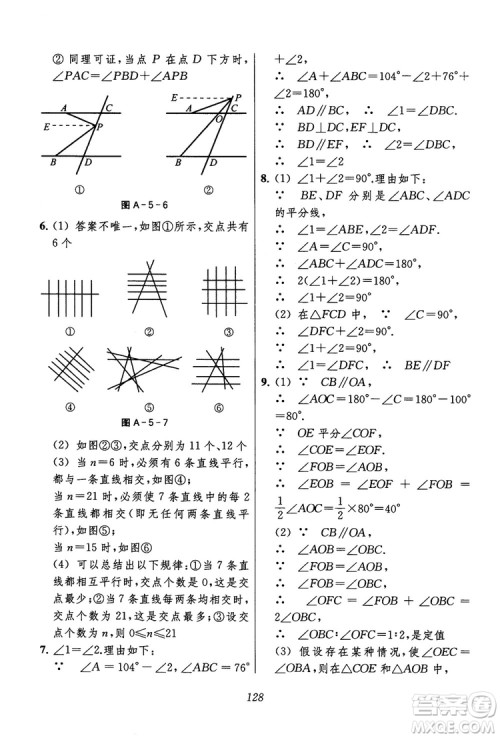 ② 同理可证，当点 P 在点 D 下方时，
∠PAC=∠PBD+∠APB
A C E P B D
①
E P A O C B D
②
图 A-5-6
6. (1) 答案不唯一，如图①所示，交点共有
6 个
① ② ③
④ ⑤ ⑥
图 A-5-7
(2) 如图②③，交点分别为 11,12 个
(3) 当 n=6 时，必须有 6 条直线平行，
都与一条直线相交，如图④
当 n=21 时，必须使 7 条直线的每 2
条直线都相交(即无平行线)，如图⑤
当 n=15 时，如图⑥
(4) 可以总结出以下规律：①当 7 条直
线都相互平行时，交点个数是 0，此时交
点最少；②当 7 条直线每两条均相交
时，交点个数为 21，此时交点最多；③设
交点个数为 n，则 0≤n≤21
7. ∠1=∠2.理由如下：
∵ ∠A=104°-∠2，∠ABC=76°
+∠2，
∴ ∠A+∠ABC=104°-∠2+76°+
∠2=180°，
∴ AD∥BC，∴ ∠1=∠DBC.
∵ BD⊥DC，EF⊥DC，
∴ BD∥EF，∴ ∠2=∠DBC，
∴ ∠1=∠2
8. (1) ∠1+∠2=90°.理由如下：
∵ BE、DF 分别是∠ABC、∠ADC
的平分线，
∴ ∠1=∠ABE，∠2=∠ADF.
∵ ∠A=∠C=90°，
∴ ∠ABC+∠ADC=180°，
∴ 2(∠1+∠2)=180°，
∴ ∠1+∠2=90°
(2) 在△FCD 中，∵ ∠C=90°，
∴ ∠DFC+∠2=90°.
∵ ∠1+∠2=90°，
∴ ∠1=∠DFC，∴ BE∥DF
9. (1) ∵ CB∥OA，
∴ ∠AOC=180°-∠C=180°-100°
=80°.
∵ OE 平分∠COF，
∴ ∠COE=∠EOF.
∵ ∠FOB=∠AOB，
∴ ∠EOB=∠EOF+∠FOB=
1/2∠AOC=1/2×80°=40°
(2) ∵ CB∥OA，
∴ ∠AOB=∠OBC.
∵ ∠FOB=∠AOB，
∴ ∠FOB=∠OBC，
∴ ∠OFC=∠FOB+∠OBC=
2∠OBC，
∴ ∠OBC:∠OFC=1:2，是定值
(3) 假设存在某种情况，使∠OEC=
∠OBA，则在△COE 和△AOB 中，
128